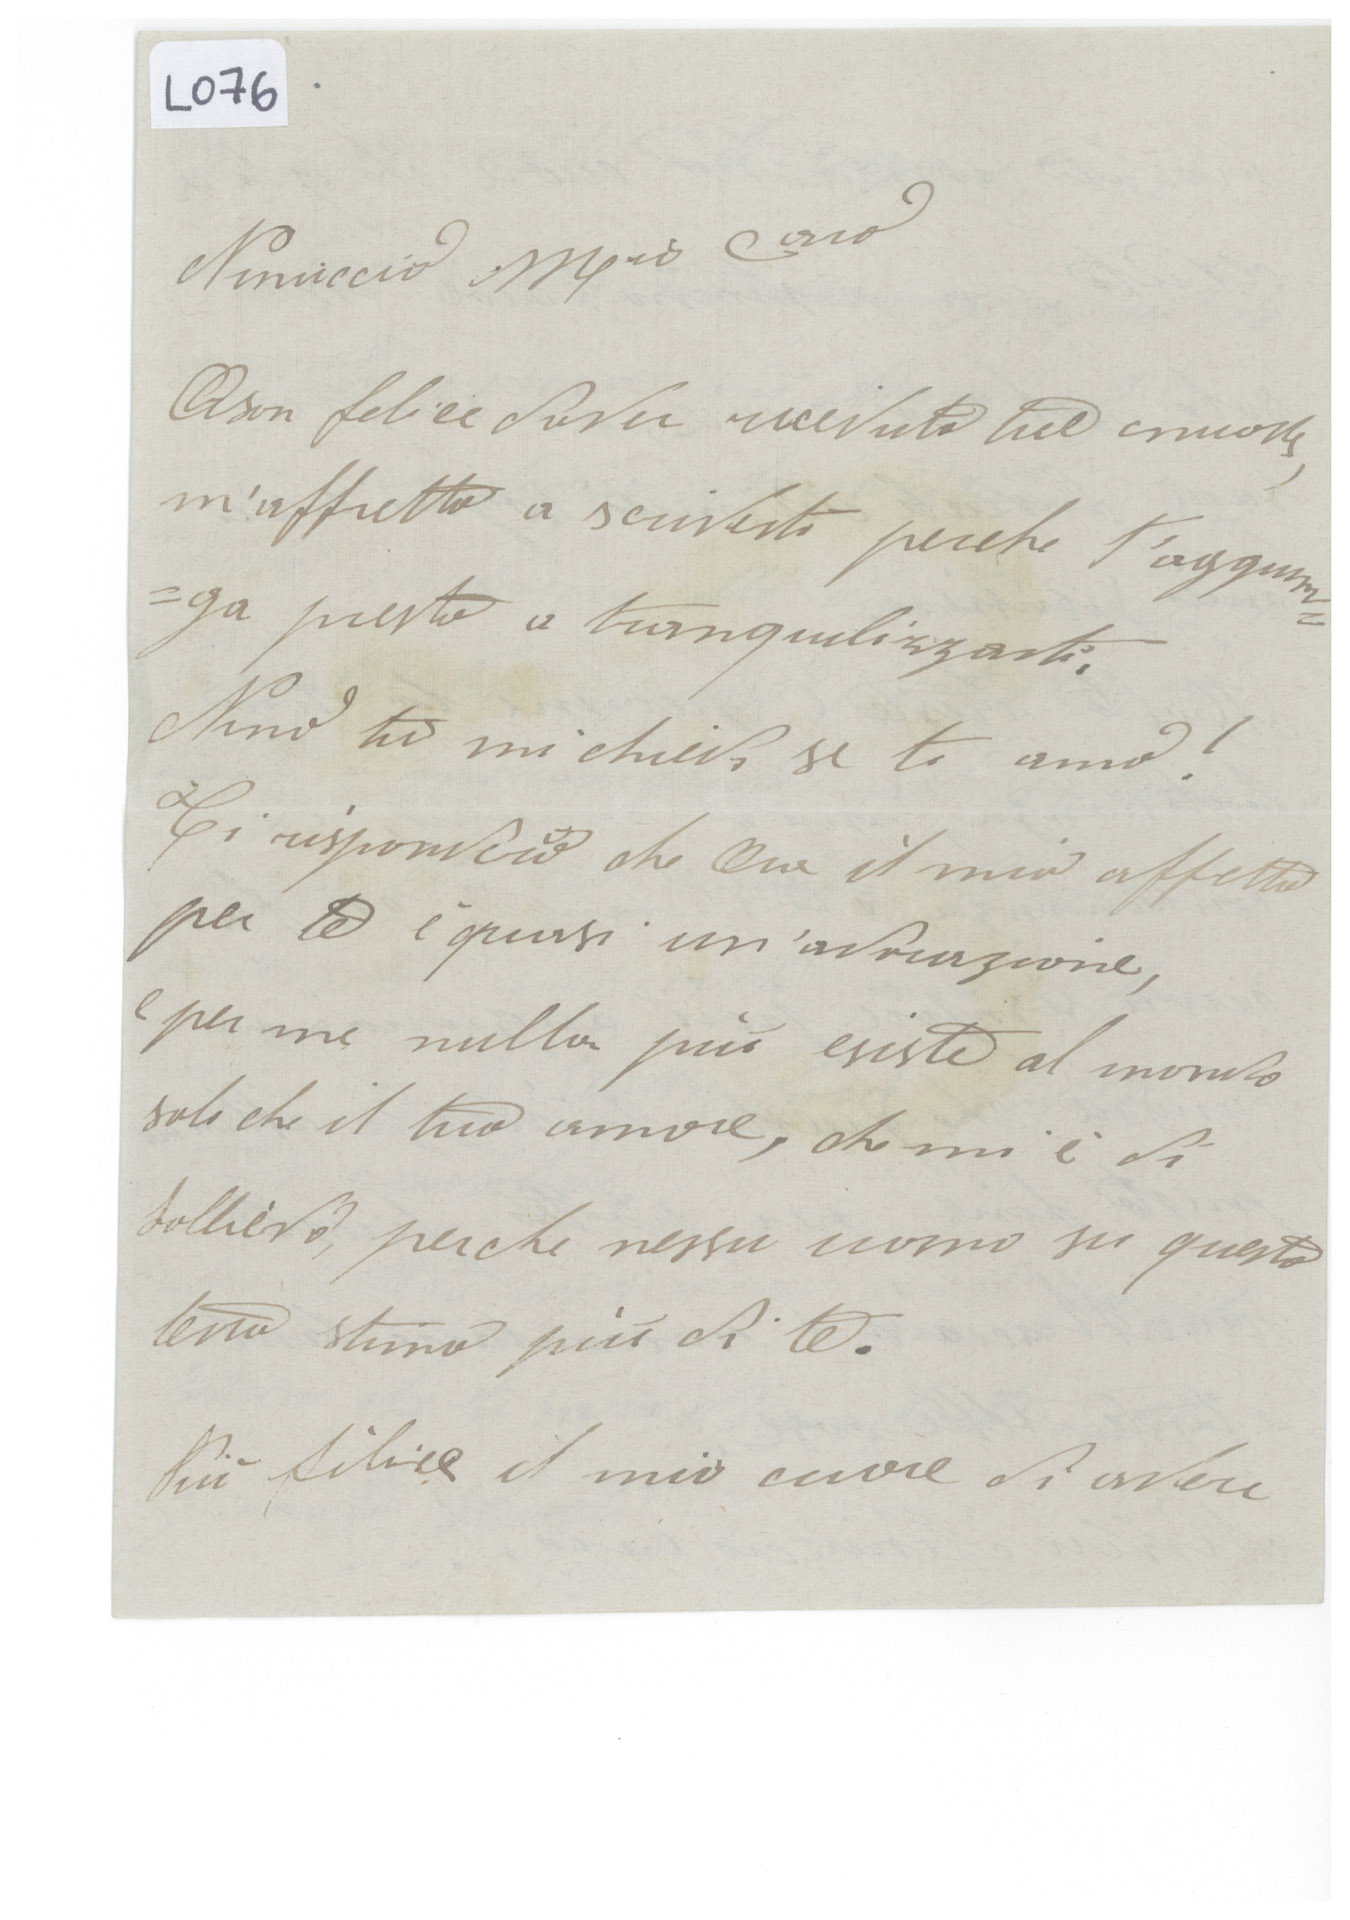 L076
Ninuccio Mio Caro
son felice d'aver ricevuto tue
m'affretto a scriverti perche t'aggium=
=ga presto a tranquilizzarti.
Nino tu mi chiedi se ti amo!
Ti risponderò che il mio affetto
per te è quasi un'adorazione,
e per me nulla più esiste al mondo
solo che il tuo amore, che mi è di
sollievo, perche nessu uomo su questa
terra stimo più di te.
Più felice il mio cuore di avere